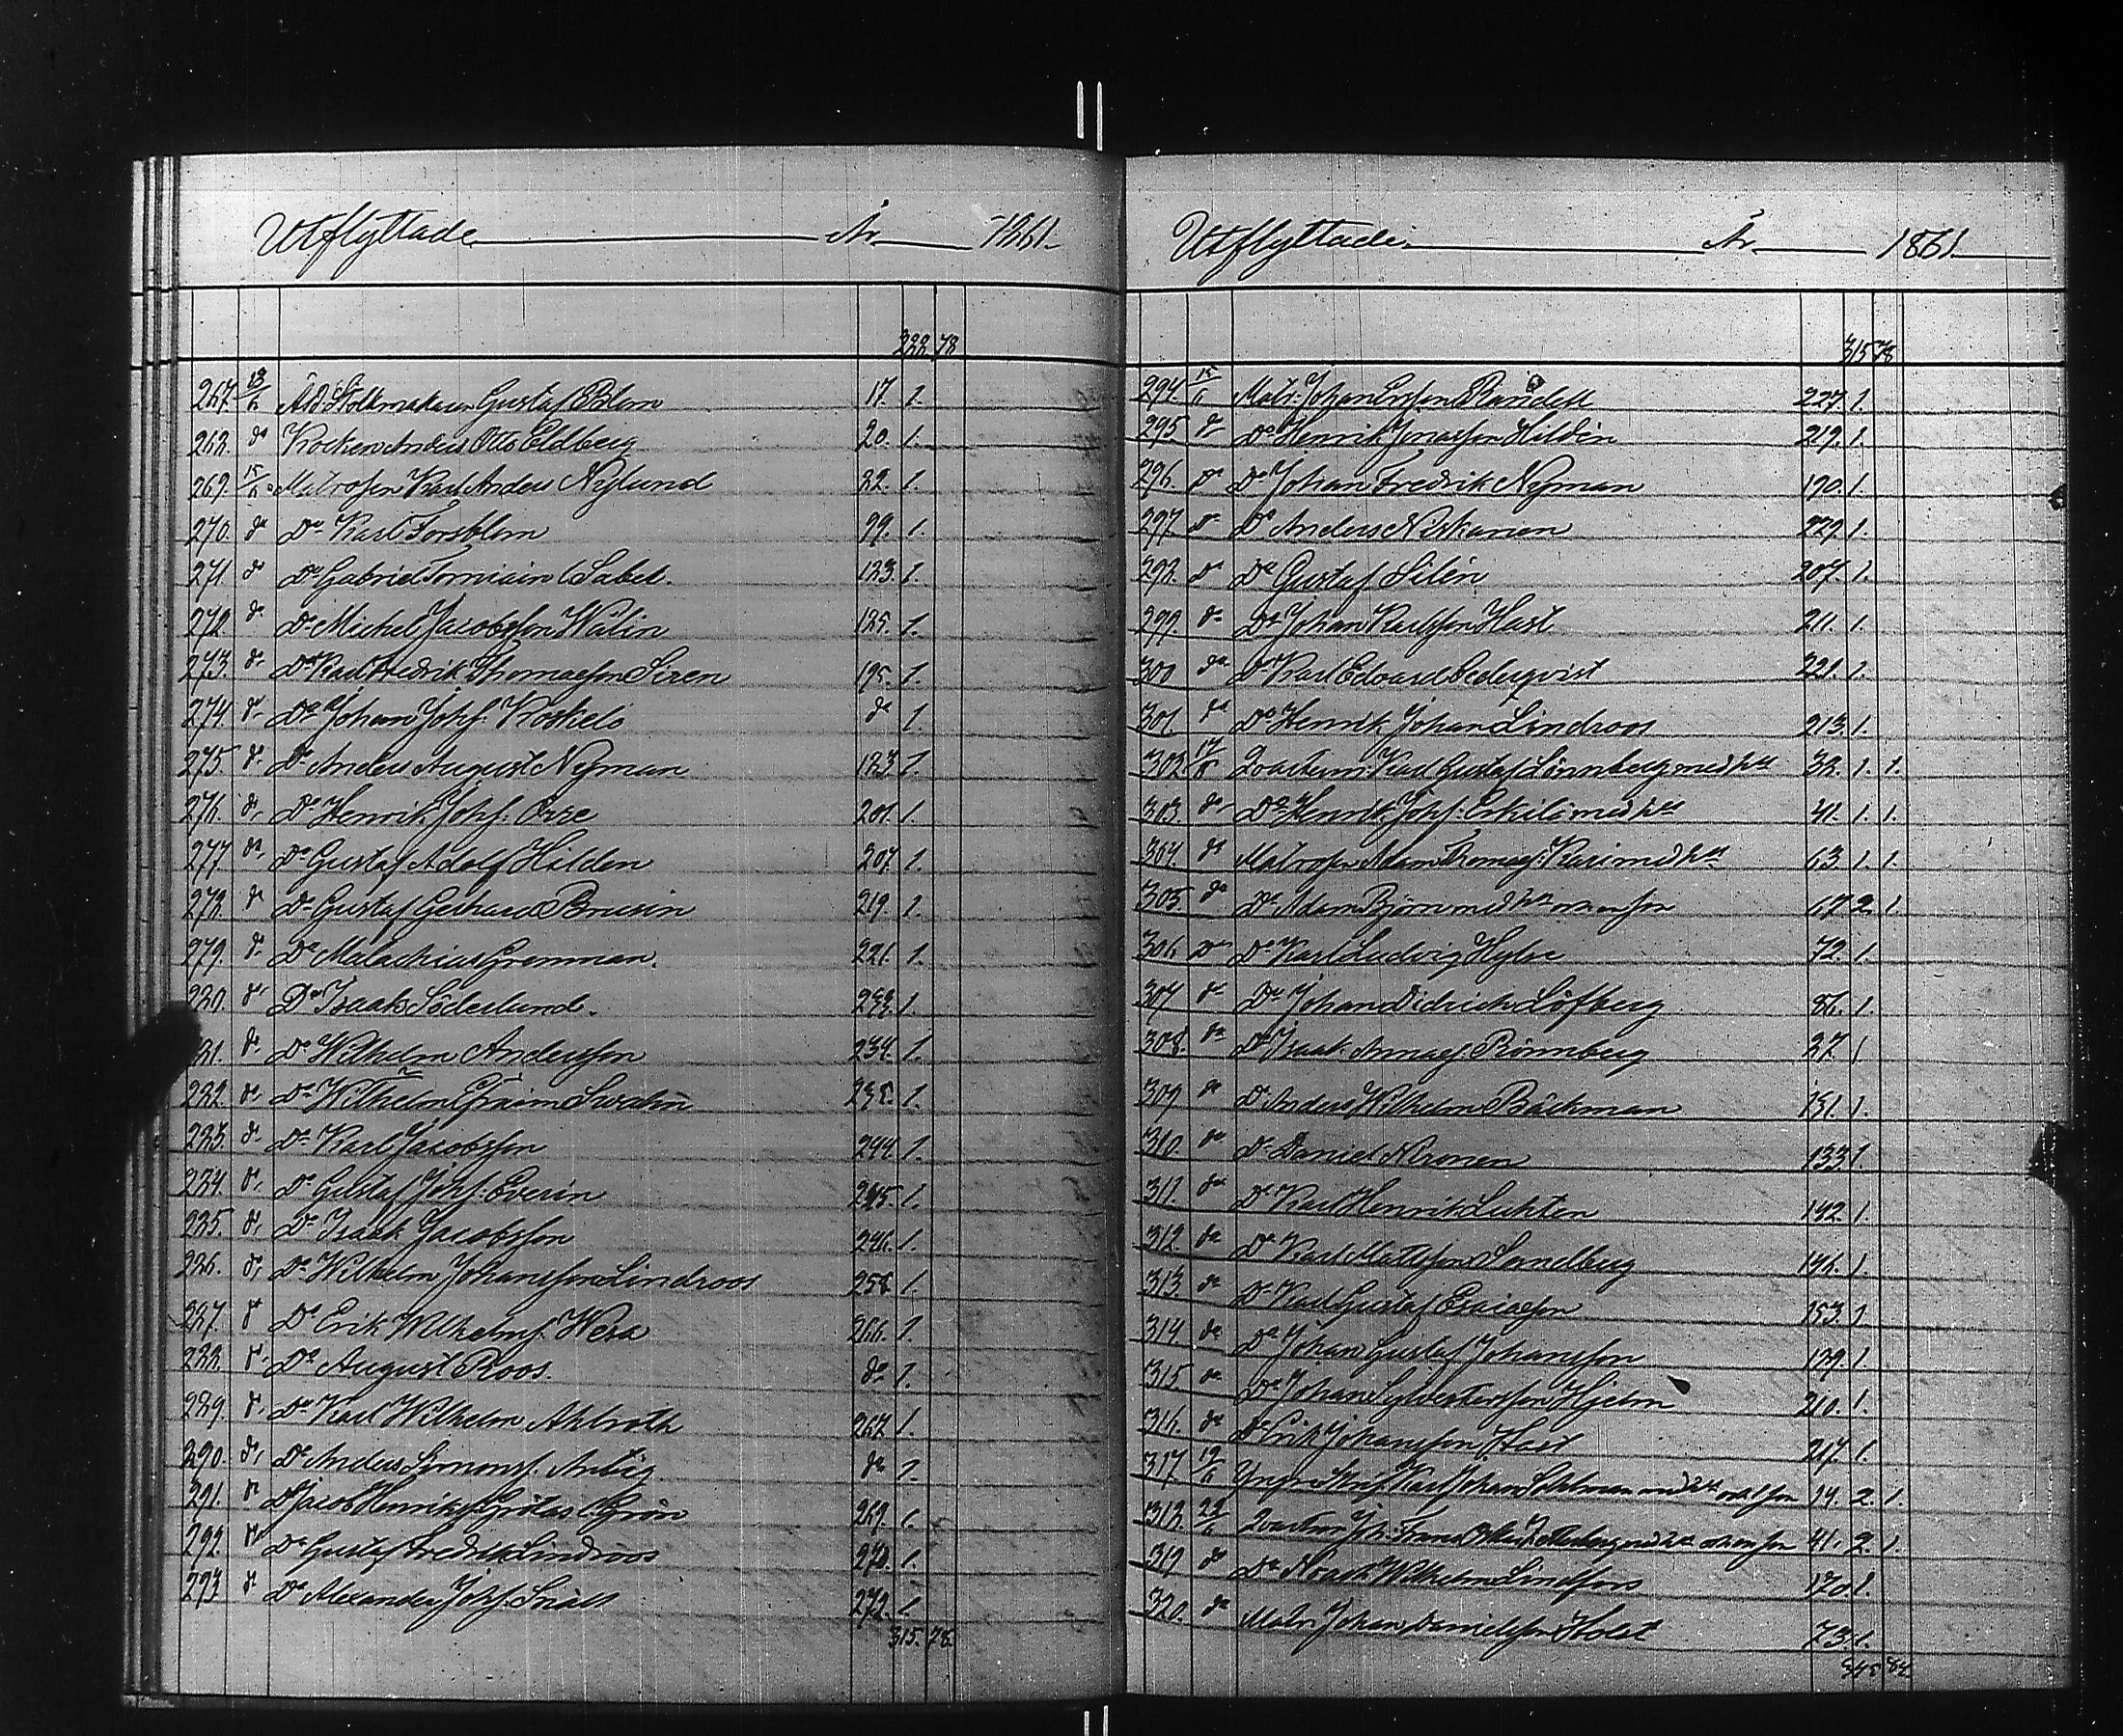 Utflyttade År 1861.
288 78
267. 13/6 Gustaf Blom 17. 1.
268. do Kocken Anders Otto Eldberg 20. 1.
269. 15/6 Matrosen Karl Anders Nylund 32. 1.
270. do Do Karl Forsblom 99. 1.
271. do Do Gabriel Sabel. 123. 1.
272. do Do Michel Jacobsson Walin 125. 1.
273. do Do Karl Fredrik Thomasson Siren 195. 1.
274. do Do Johan Johs. Koskelo do 1.
275. do Do Anders August Nyman 183. 1.
276. do Do Henrik Johs. Orre 201. 1.
277. do Do Gustaf Adolf Hilden 207. 1.
278. do Do Gustaf Gerhard Brusin 219. 1.
279. do Do Malachias Gromman. 221. 1.
280. do Do Isaak Söderlund. 1.
281. do Do Wilhelm Andersson 234. 1.
282. do Do Wilhelm Efraim Swahn 235. 1.
283. do Do Karl Jacobsson 244. 1.
284. do Do Gustaf Johs. Everin 245. 1.
285. do Do Isaak Jacobsson 246. 1.
286. do Do Wilhelm Johansson Lindroos 258. 1.
287. do Do Erik Wilhelms. Wesa 266. 1.
288. do Do August Roos. do 1.
289. do Do Karl Wilhelm Ahlroth 267. 1.
290. do Do Anders Simons. do 1.
291. do Do Jacob Henriks. Grön 269. 1.
292. do Do Gustaf Fredrik Lindroos 270. 1.
293. do Do Alexander Johs. Snäll 272. 1.
315. 78.
Utflyttade År 1861.
315 78
294. 15/6 Matr. Johan Ersson Randell 227. 1.
295 do Do Henrik Jonasson Hildén 219. 1.
296. do Do Johan Fredrik Nyman 190. 1.
297. do Do Anders Niskanen 229. 1.
298. do Do Gustaf Silén 207. 1.
299. do Do Johan Karlsson Hast 211. 1.
300 do Do Karl Edvard Cederqvist 221. 1.
301. do Do Henrik Johan Lindroos 213. 1.
302. 17/6 Karl Gustaf Lönnberg med hu 32. 1. 1.
303. do Do Henrik Johs. Erkilä med hu 41. 1. 1.
304. do Matrosen Adam Thomas. Kari med hu 63. 1. 1.
305. do Do Adam Björn med hu o en son 67. 2. 1.
306. do Do Karl Ludvig 72. 1.
307 do Do Johan Didrich Löfberg 86. 1.
308. do Do Isaak Rönnberg 27. 1
309 do Do Anders Wilhelm Bäckman 131. 1.
310. do Do Daniel Nironen 133. 1.
311. do Do Karl Henrik Luhten 142. 1.
312. do Do Karl Mattsson Sandberg 146. 1.
313. do Do Karl Gustaf Esaiasson 153. 1.
314. do Do Johan Gustaf Johansson 179. 1.
315. do Do Johan Sylvestersson Hjelm 210. 1.
316. do Do Erik Johansson Hast 217. 1.
317. 19/6 Karl Johan med hu o 1 son 14. 2. 1.
318. 22/6 Joh. Frans med hu o en son 41. 2. 1.
319 do Do Noach Wilhelm Lindfors 170. 1.
320. do Matr. Johan Danielsson Holst 73. 1.
345 84.